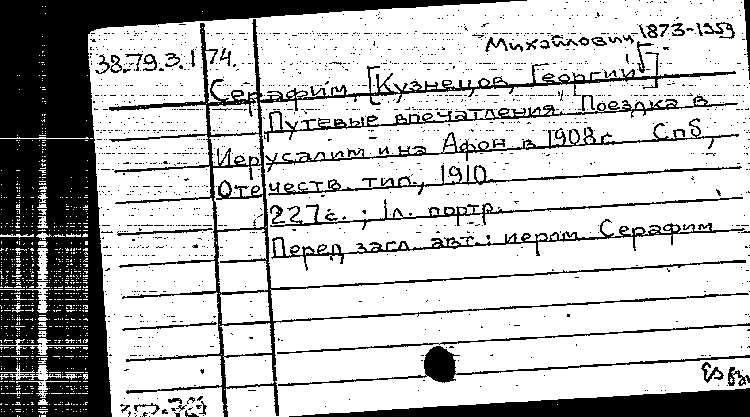 Михайлович 1873-1959
38.79.3.174.
Серафим, [Кузнецов, Георгий]
Путевые впечатления. Поездка в
Иерусалим и на Афон в 1908г. Спб,
Отечеств. тип., 1910.
227с. ; 1л. портр.
Перед загл. авт.: иером. Серафим